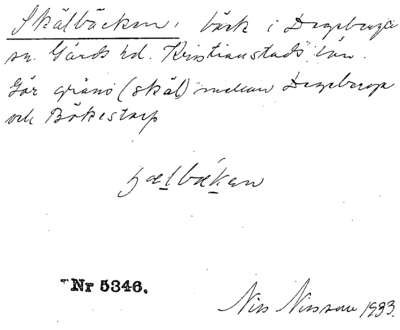 Skälbäcken, bäck i Degeberga
sn. Gärds hd. Kristianstads län.
Gör gräns (skäl) mellan Degeberga
och Bökestorp
Nr 5346.
Nils Nilsson 1933.